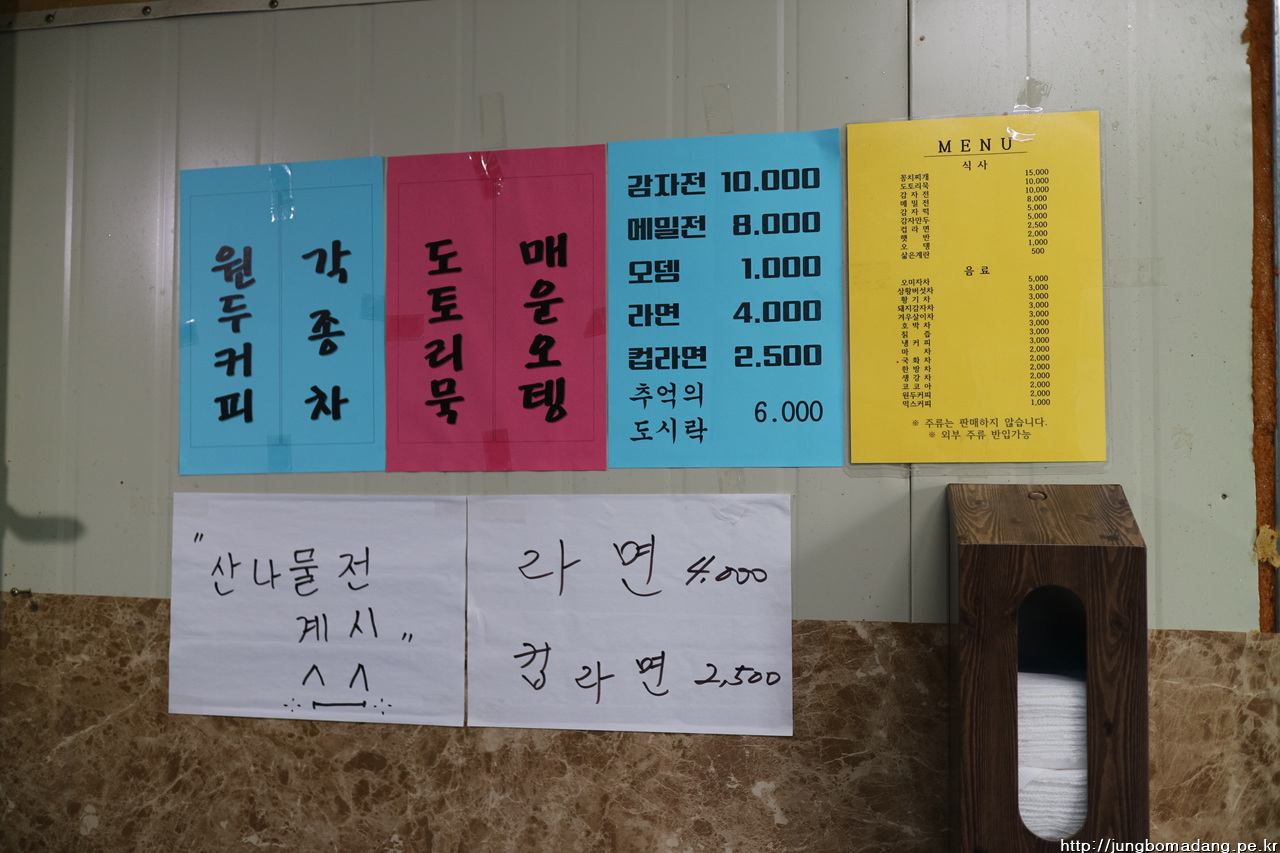 각종차
원두커피
매운오뎅
도토리묵
감자전 10.000
메밀전 8.000
오뎅 1.000
라면 4.000
컵라면 2.500
추억의
도시락 6.000
MENU
식사
꽁치찌개 15,000
도토리묵 10,000
감자전 10,000
메밀전 8,000
감자떡 5,000
감자만두 5,000
컵라면 2,500
햇반 2,000
오뎅 1,000
삶은계란 500
음료
오미자차 5,000
상황버섯차 3,000
황기차 3,000
돼지감자차 3,000
겨우살이차 3,000
호박차 3,000
칡즙 3,000
냉커피 3,000
마차 2,000
국화차 2,000
한방차 2,000
생강차 2,000
코코아 2,000
원두커피 2,000
믹스커피 1,000
※ 주류는 판매하지 않습니다.
※ 외부 주류 반입가능
"산나물전
계시"
라면 4.000
컵라면 2,500
http://jungbomadang.pe.kr